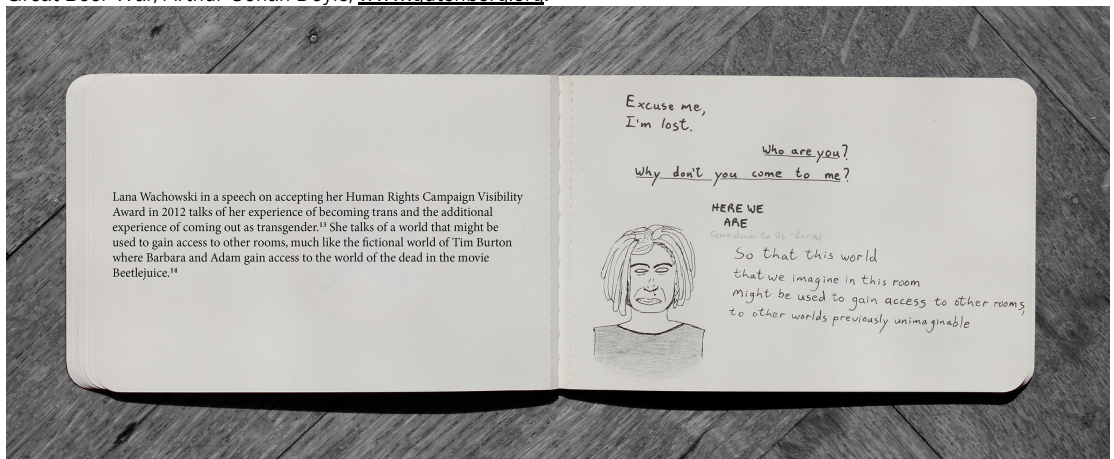 Great Boer War, Arthur Conan Doyle, www.gutenberg.org.
Lana Wachowski in a speech on accepting her Human Rights Campaign Visibility
Award in 2012 talks of her experience of becoming trans and the additional
experience of coming out as transgender.¹³ She talks of a world that might be
used to gain access to other rooms, much like the fictional world of Tim Burton
where Barbara and Adam gain access to the world of the dead in the movie
Beetlejuice.¹⁴
Excuse me,
I'm lost.
Who are you?
Why don't you come to me?
HERE WE
ARE
So that this world
that we imagine in this room
might be used to gain access to other rooms,
to other worlds previously unimaginable